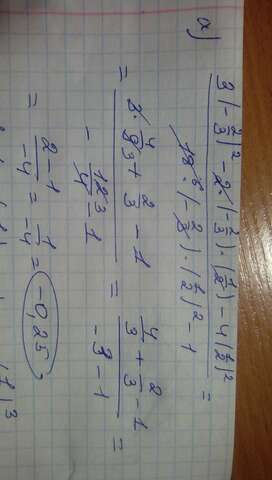 a) \frac{3(-\frac{2}{3})^2 - 2·(-\frac{2}{3})·(\frac{1}{2}) - 4(\frac{1}{2})^2}{18^6·(-\frac{2}{3})·(\frac{1}{2})^2 - 1} =
= \frac{3·\frac{4}{9_3} + \frac{2}{3} - 1}{-\frac{12^3}{4} - 1} = \frac{\frac{4}{3} + \frac{2}{3} - 1}{-3 - 1} =
= \frac{2 - 1}{-4} = \frac{1}{-4} = -0,25